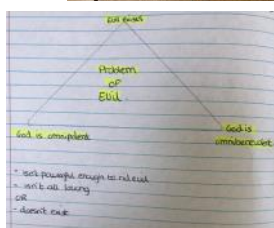 Evil exists
Problem
of
Evil
God is omnipotent
God is
omnibenevolent
- isn't powerful enough to rid evil
- isn't all loving
OR
- doesn't exist